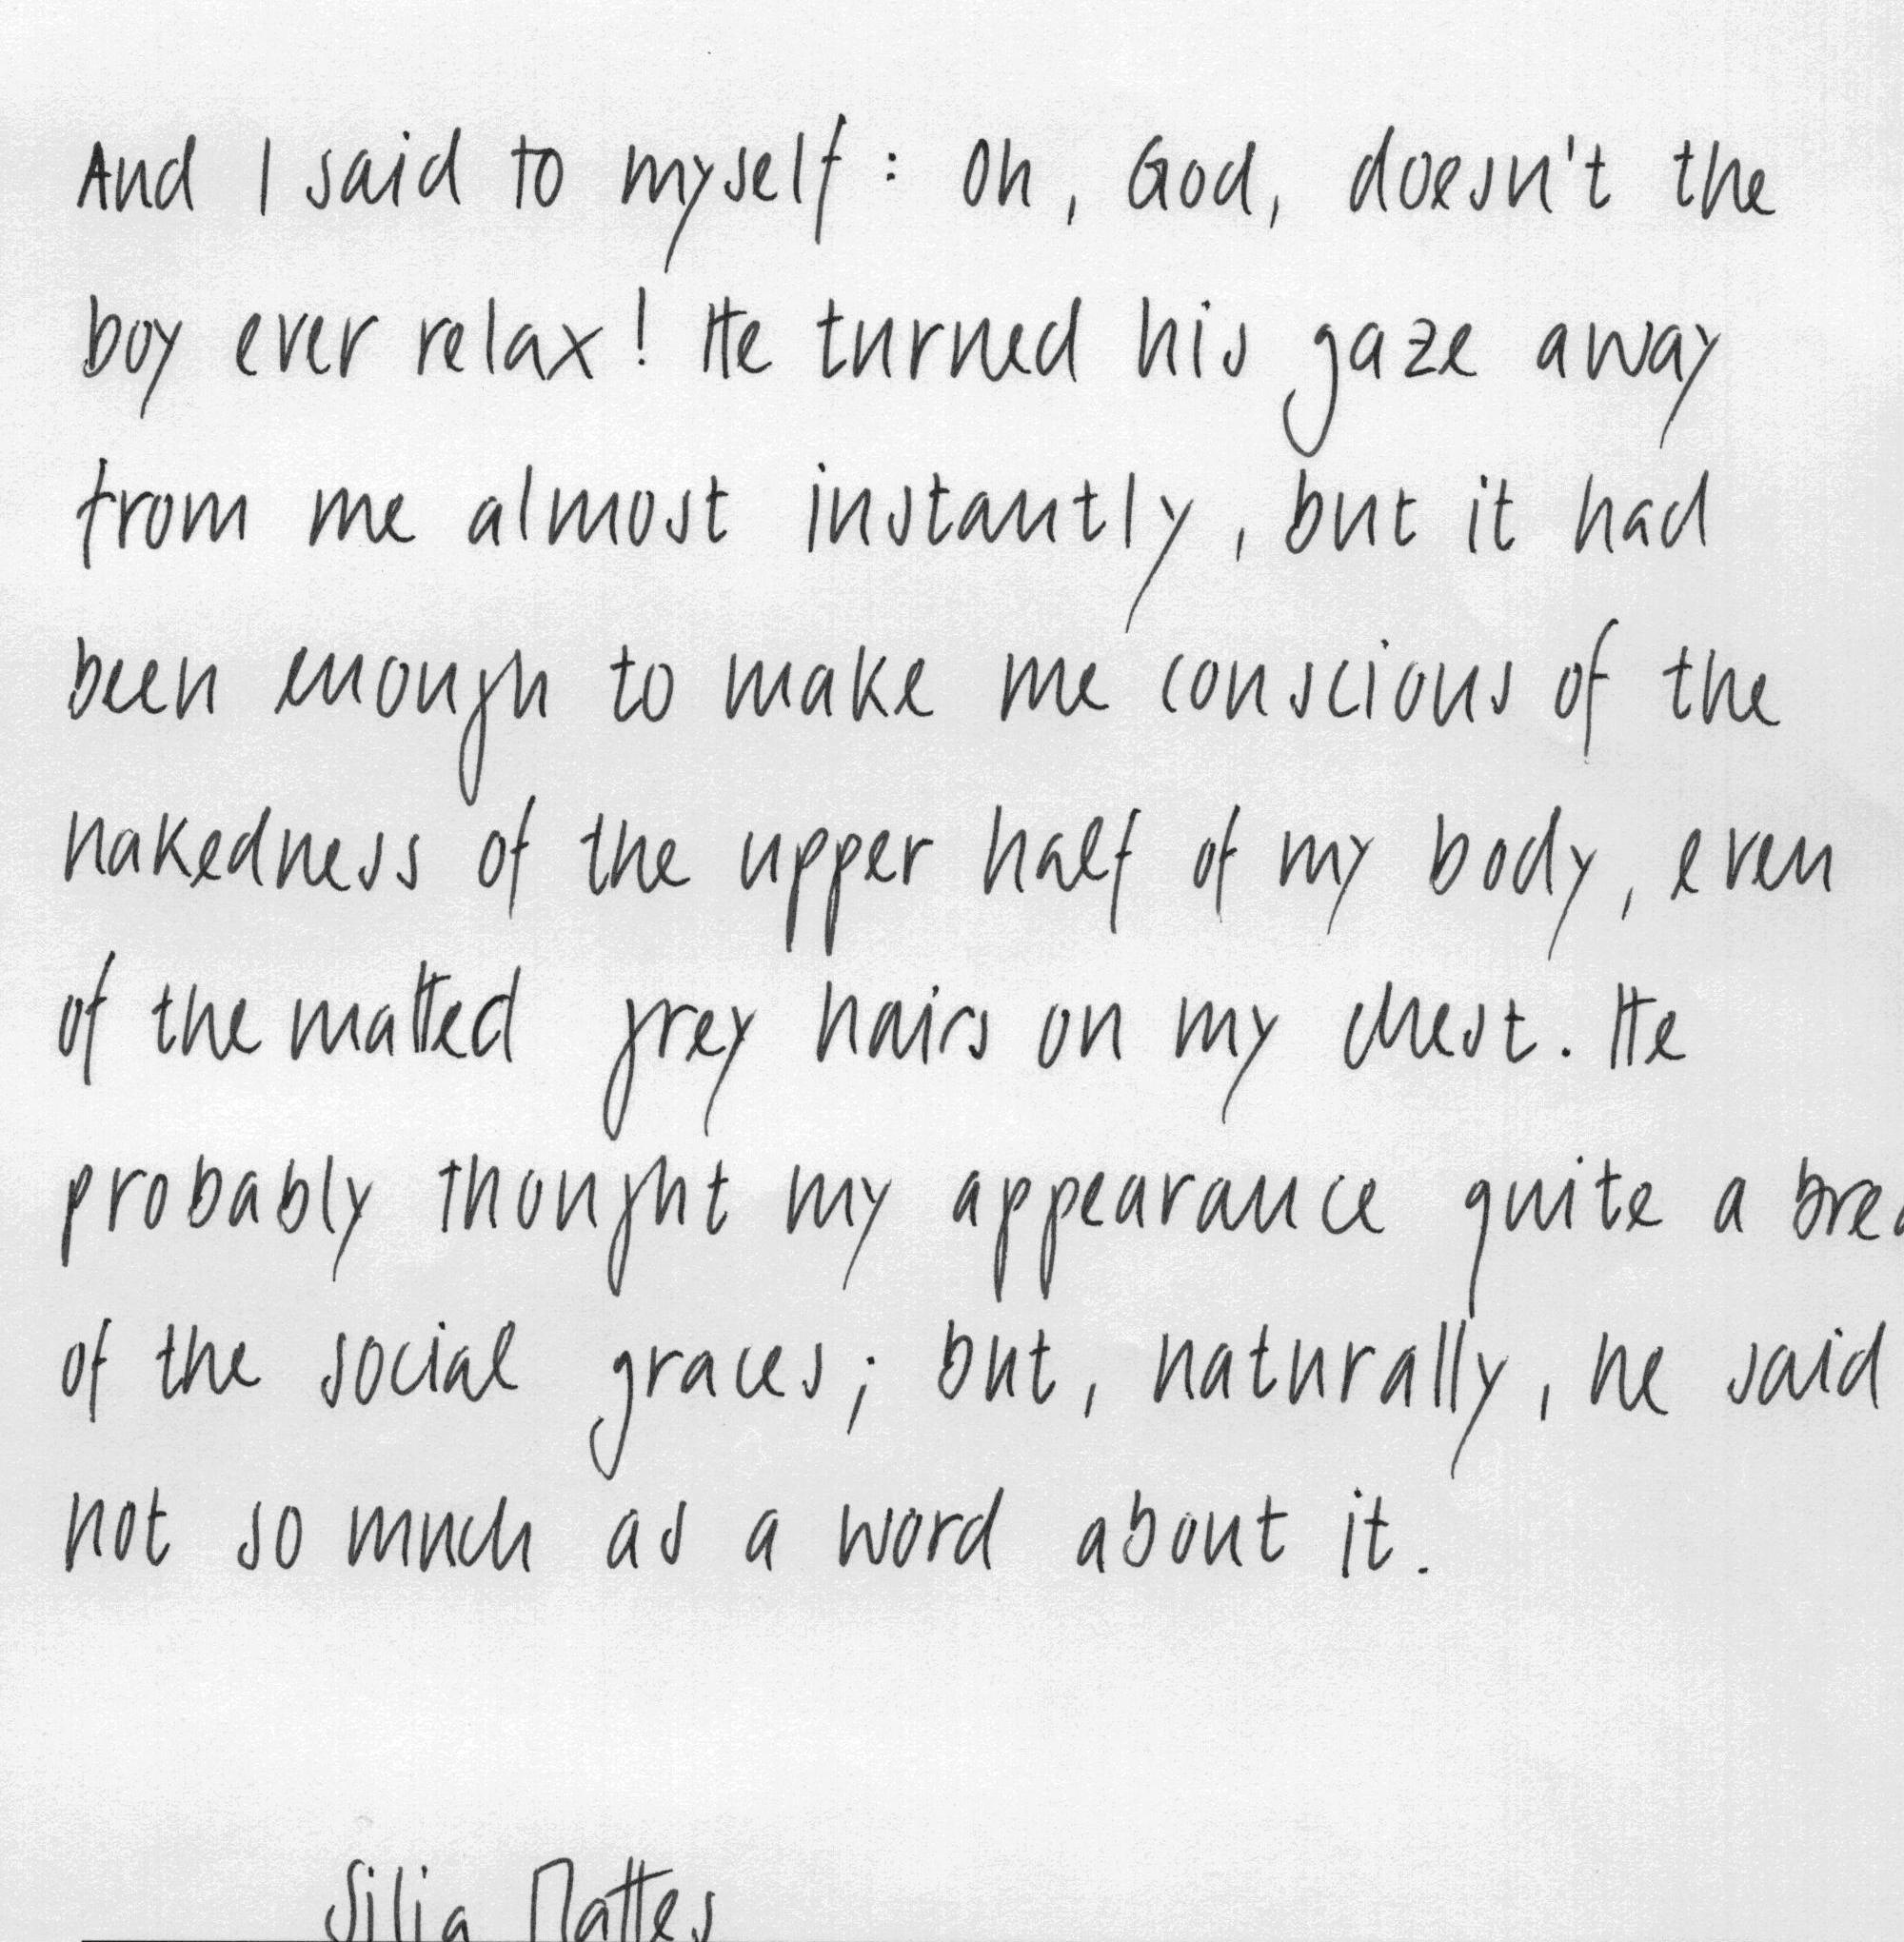 And I said to myself : Oh, God, doesn't the
boy ever relax! He turned his gaze away
from me almost instantly, but it had
been enough to make me conscious of the
nakedness of the upper half of my body, even
of the matted grey hairs on my chest. He
probably thought my appearance quite a brea
of the social graces; but, naturally, he said
not so much as a word about it.
Silia Mattes